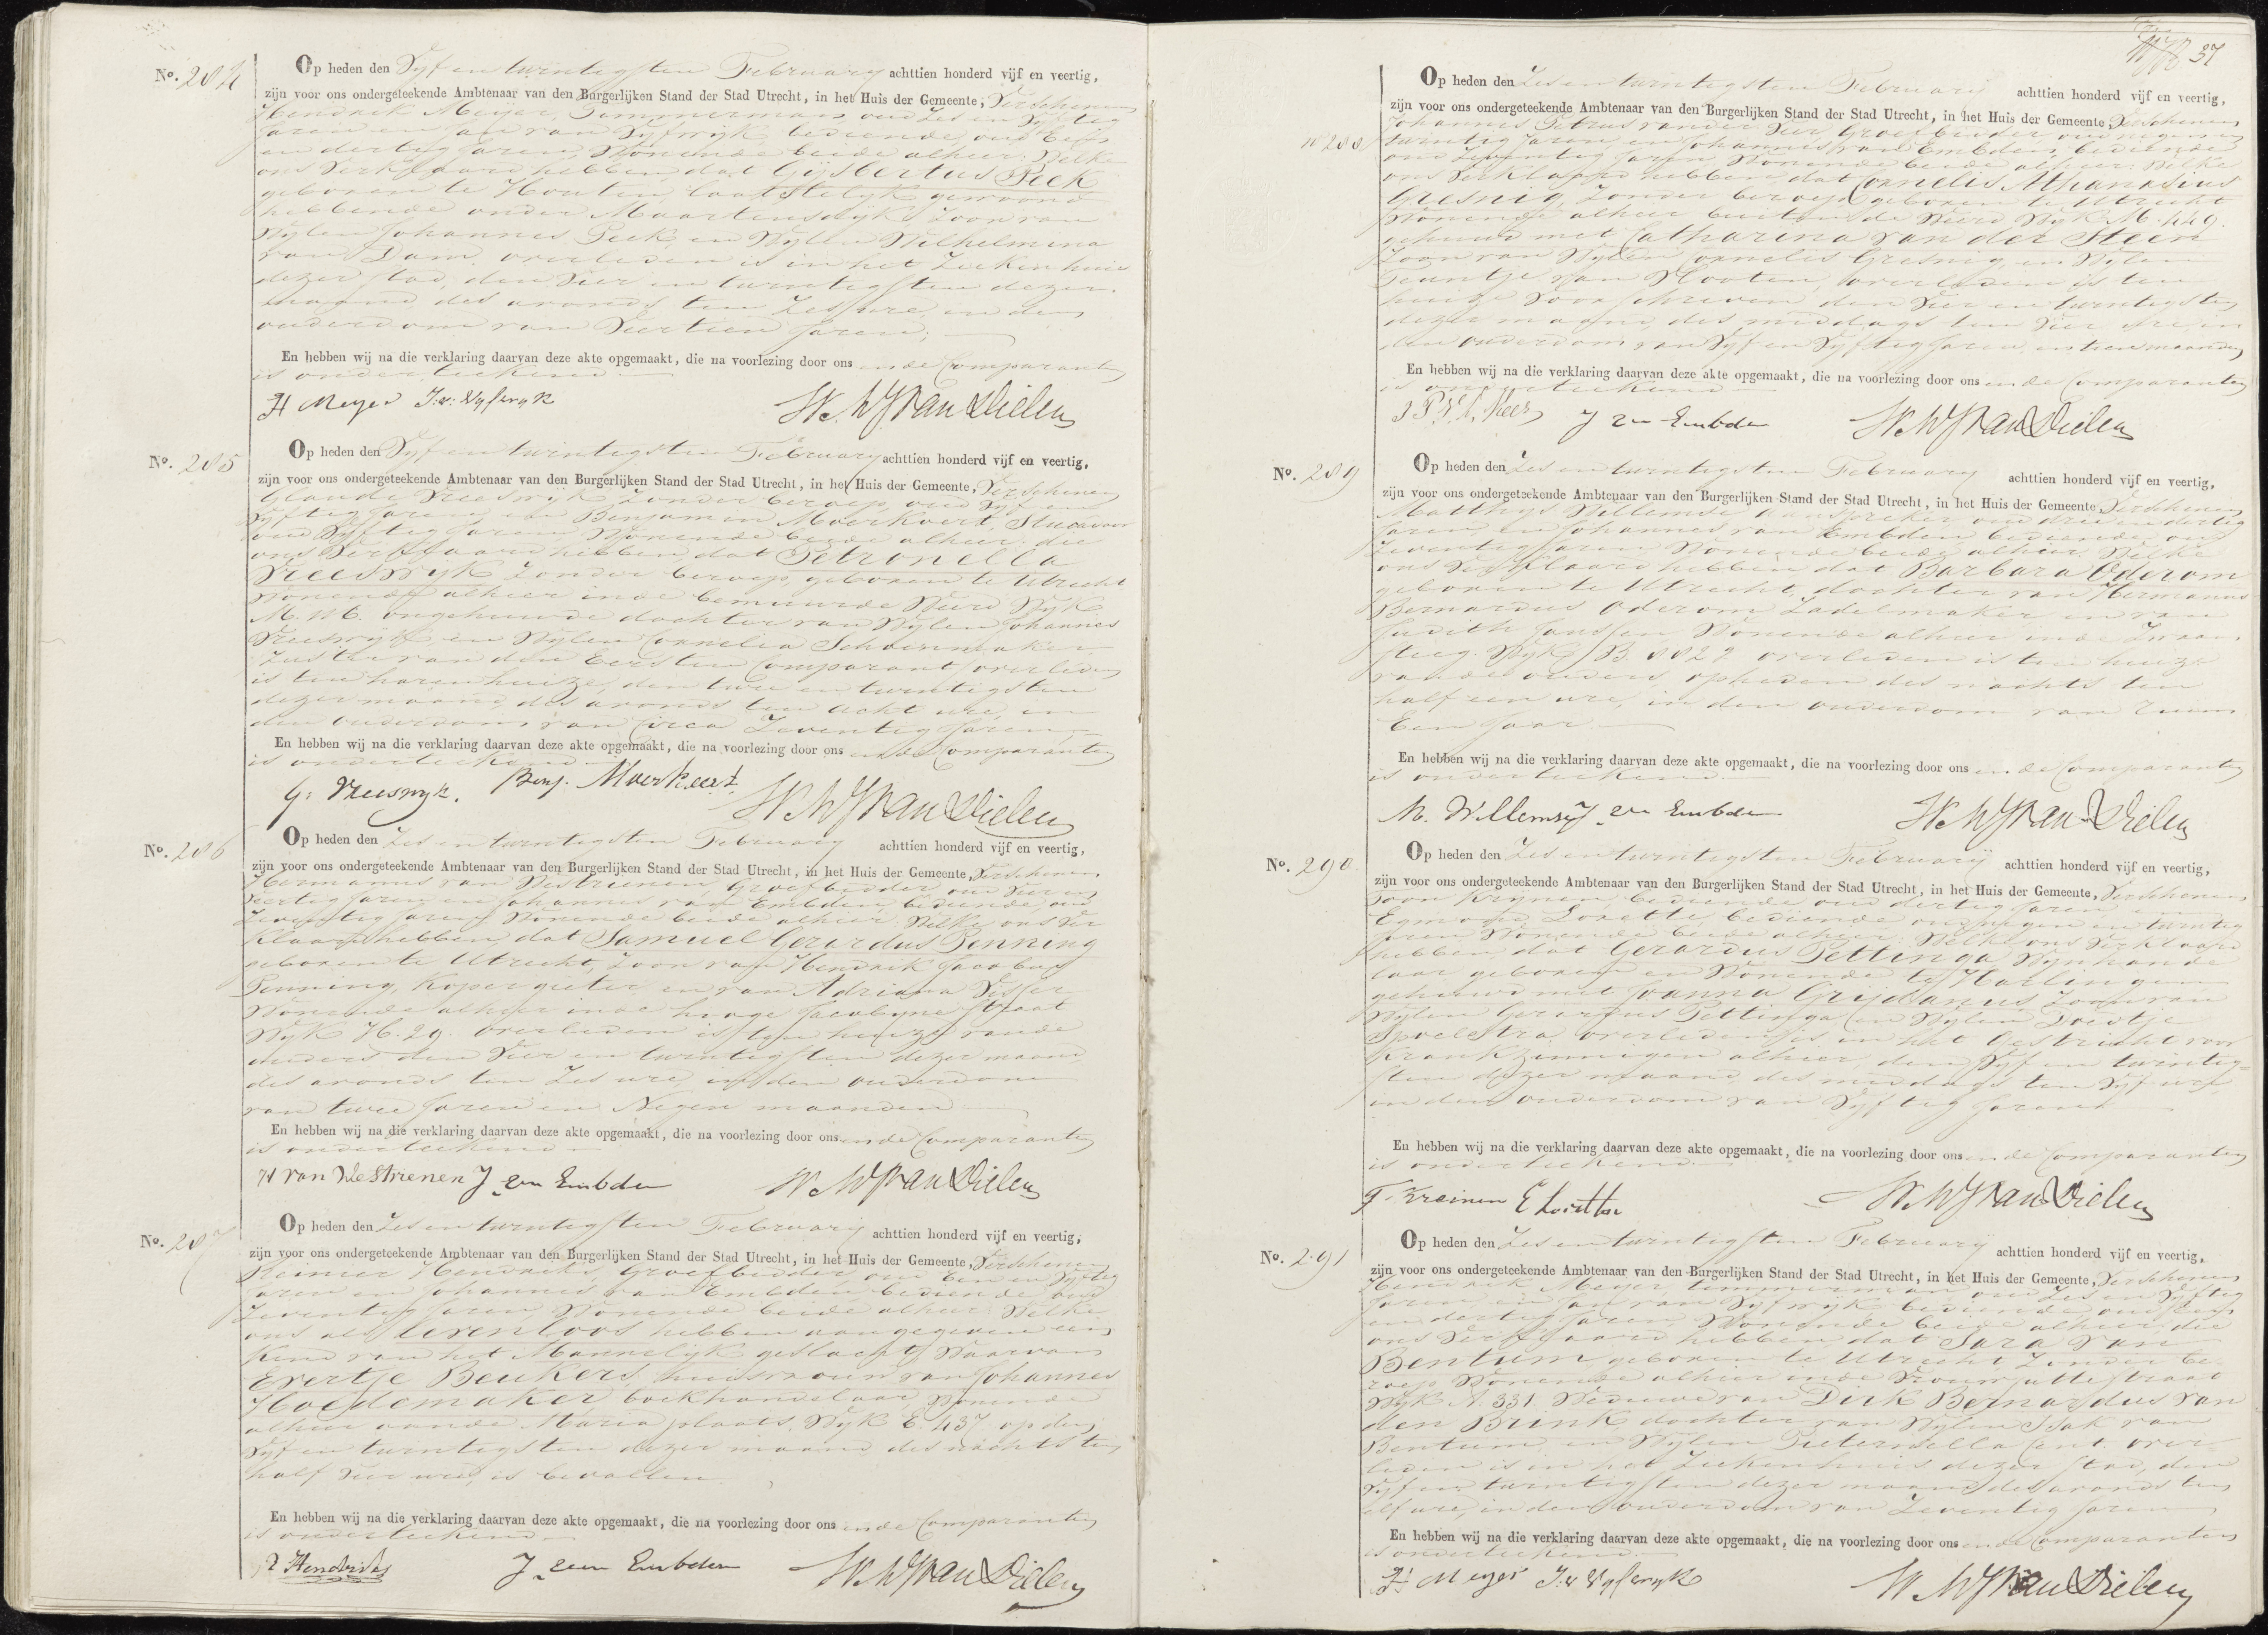 No. 284
Op heden den Vyf en twintigsten February achttien honderd vijf en veertig,
zijn voor ons ondergeteekende Ambtenaar van den Burgerlijken Stand der Stad Utrecht, in het Huis der Gemeente, Verschenen
Hendrik Meijer, Timmerman oud Zes en Vyftig
Jaren en Jan van Vyfwyk bediende, oud Een
en dertig Jaren, Wonende beide alhier: Welke
ons Verklaard hebben dat Gysbertus Peek
geboren te Houten laatstelyk gewoond
hebbende onder Maartensdyk Zoon van
Wylen Johannes Peek en Wylen Wilhelmina
van Dam, overleden is in het Ziekenhuis
dezer stad, den Vier en twintigsten dezer
maand des avonds ten Zes ure, in den
ouderdom van Veertien Jaren;
En hebben wij na die verklaring daarvan deze akte opgemaakt, die na voorlezing door ons en de Comparanten
is onderteekend
H Meyer J:v: Vyfwyk W. W. J. van Dielen
No. 285
Op heden den Vyf en twintigsten February achttien honderd vijf en veertig,
zijn voor ons ondergeteekende Ambtenaar van den Burgerlijken Stand der Stad Utrecht, in het Huis der Gemeente, Verschenen
Glaude Vreeswyk Zonder beroep oud Vyf en
Vyftig Jaren en Benjamin Moerkoert, Stucadoor
oud Vyftig Jaren Wonende beide alhier: die
ons Verklaard hebben dat Petronella
Vreeswyk Zonder beroep, geboren te Utrecht
Wonende alhier in de bemuurde Weerd Wyk
M. 116. ongehuwde dochter van Wylen Johannes
Vreeswyk en Wylen Cornelia Schoenmaker
Zuster van den Eersten Comparant overleden
is ten haren huize, den twee en twintigsten
dezer maand des avonds ten Acht ure, in
den ouderdom van Circa Zeventig Jaren
En hebben wij na die verklaring daarvan deze akte opgemaakt, die na voorlezing door ons en de Comparanten
is onderteekend
G: Vreeswyk. Benj. Moerkoert. W. W. J. van Dielen
No. 286
Op heden den Zes en twintigsten February achttien honderd vijf en veertig,
zijn voor ons ondergeteekende Ambtenaar van den Burgerlijken Stand der Stad Utrecht, in het Huis der Gemeente, Verschenen
Hermannus van Westrienen, Groefbidder, oud Vier en
Veertig Jaren en Johannes van Embden, bediende oud
Zeventig Jaren, Wonende beide alhier: Welke ons Ver
klaard hebben, dat Samuel Gerardus Penning
geboren te Utrecht, Zoon van Hendrik Jacobus
Penning, Kopergieter en van Adriana Visser
Wonende alhier in de hooge Jacobyne straat
Wyk H. 29. overleden is ten huize van de
ouders den Vier en twintigsten dezer maand
des avonds ten Zes ure, in den ouderdom
van twee Jaren en Negen maanden
En hebben wij na die verklaring daarvan deze akte opgemaakt, die na voorlezing door ons en de Comparanten
is onderteekend
H van Westrienen J van Embden W. W. J. van Dielen
No. 287
Op heden den Zes en twintigsten February achttien honderd vijf en veertig,
zijn voor ons ondergeteekende Ambtenaar van den Burgerlijken Stand der Stad Utrecht, in het Huis der Gemeente, Verschenen
Reinier Hendriks, Groefbidder oud Een en Vyftig
Jaren en Johannes van Embden bediende oud
Zeventig Jaren Wonende beide alhier: Welke
ons als levenloos hebben aangegeven een
Kind van het Mannelyk geslacht, Waarvan
Evertje Beukers, huisvrouw van Johannes
Hoedemaker, boekhandelaar, Wonende
alhier aan de Maria plaats, Wyk E. 437. op den
Vyf en twintigsten dezer maand des nachts ten
half Vier ure, is bevallen.
En hebben wij na die verklaring daarvan deze akte opgemaakt, die na voorlezing door ons en de Comparanten
is onderteekend
R Hendriks J van Embden W. W. J. van Dielen
37
No 288
Op heden den Zes en twintigsten February achttien honderd vijf en veertig,
zijn voor ons ondergeteekende Ambtenaar van den Burgerlijken Stand der Stad Utrecht, in het Huis der Gemeente, Verschenen
Johannes Petrus van der Veer, Groefbidder, oud negen en
twintig Jaren, en Johannes van Embden, bediende
oud Zeventig Jaren, Wonende beide alhier: Welke
ons Verklaard hebben dat Cornelis Athanasius
Gresnig, Zonder beroep, geboren te Utrecht
Wonende alhier buiten de Weerd Wyk M. 449.
gehuwd met Catharina van der Steen
Zoon van Wylen Cornelis Gresnig, en Wylen
Teuntje van Slooten, overleden is ten
huize Voorschreven den Vier en twintigsten
dezer maand, des middags ten Vier Ure, in
den ouderdom van Vyf en Vyftig Jaren, en twee maanden
En hebben wij na die verklaring daarvan deze akte opgemaakt, die na voorlezing door ons en de Comparanten
is onderteekend
J P V d Veer J van Embden W. W. J. van Dielen
No. 289
Op heden den Zes en twintigsten February achttien honderd vijf en veertig,
zijn voor ons ondergeteekende Ambtenaar van den Burgerlijken Stand der Stad Utrecht, in het Huis der Gemeente, Verschenen
Matthys Willemse, Aanspreker oud drie en dertig
Jaren, en Johannes van Embden bediende oud
Zeventig Jaren Wonende beide alhier: Welke
ons Verklaard hebben dat Barbara Oderom
geboren te Utrecht, dochter van Hermanus
Bernardus Oderom Zadelmaker en van
Judith Janssen Wonende alhier in de Zwaan
steeg. Wyk B. 829 overleden is ten huize
van de ouders, op heden des nachts ten
half een ure, in den ouderdom van ruim
Een Jaar.
En hebben wij na die verklaring daarvan deze akte opgemaakt, die na voorlezing door ons en de Comparanten
is onderteekend.
M. Willemse J van Embden W. W. J. van Dielen
No. 290.
Op heden den Zes en twintigsten February achttien honderd vijf en veertig,
zijn voor ons ondergeteekende Ambtenaar van den Burgerlijken Stand der Stad Utrecht, in het Huis der Gemeente, Verschenen
Toon Krynen, bediende oud dertig Jaren en
Egmond Lorette, bediende oud negen en twintig
Jaren Wonende beide alhier: Welke ons Verklaard
hebben dat Gerardus Pettinga, Wynhande
laar geboren en Wonende te Harlingen
gehuwd met Joanna Grijdanus Zoon van
Wylen Gerardus Pettinga en Wylen Doestje
Spoelstra, overleden is in het Gesticht voor
Krankzinnigen alhier, den Vyf en twintig-
sten dezer maand des middags ten Vyf ure
in den ouderdom van Vyftig Jaren
En hebben wij na die verklaring daarvan deze akte opgemaakt, die na voorlezing door ons en de Comparanten
is onderteekend.
T. Kreinen E Lorette W. W. J. van Dielen
No. 291
Op heden den Zes en twintigsten February achttien honderd vijf en veertig,
zijn voor ons ondergeteekende Ambtenaar van den Burgerlijken Stand der Stad Utrecht, in het Huis der Gemeente, Verschenen
Hendrik Meijer, timmerman oud Zes en Vyftig
Jaren en Jan van Vyfwyk bediende oud een
en dertig Jaren, Wonende beide alhier: die
ons Verklaard hebben dat Sara van
Bentum geboren te Utrecht Zonder be-
roep Wonende alhier in de Vrouwjuttestraat
Wyk A. 331. Weduwe van Dirk Bernardus van
den Brink dochter van Wylen Isak van
Bentum en Wylen Pieternella Cent. over-
leden is in het Ziekenhuis dezer stad, den
Vyf en twintigsten dezer maand des avonds ten
elf ure, in den ouderdom van Zeventig Jaren
En hebben wij na die verklaring daarvan deze akte opgemaakt, die na voorlezing door ons en de Comparanten
is onderteekend.
H Meyer J:v Vyfwyk W. W. J. van Dielen